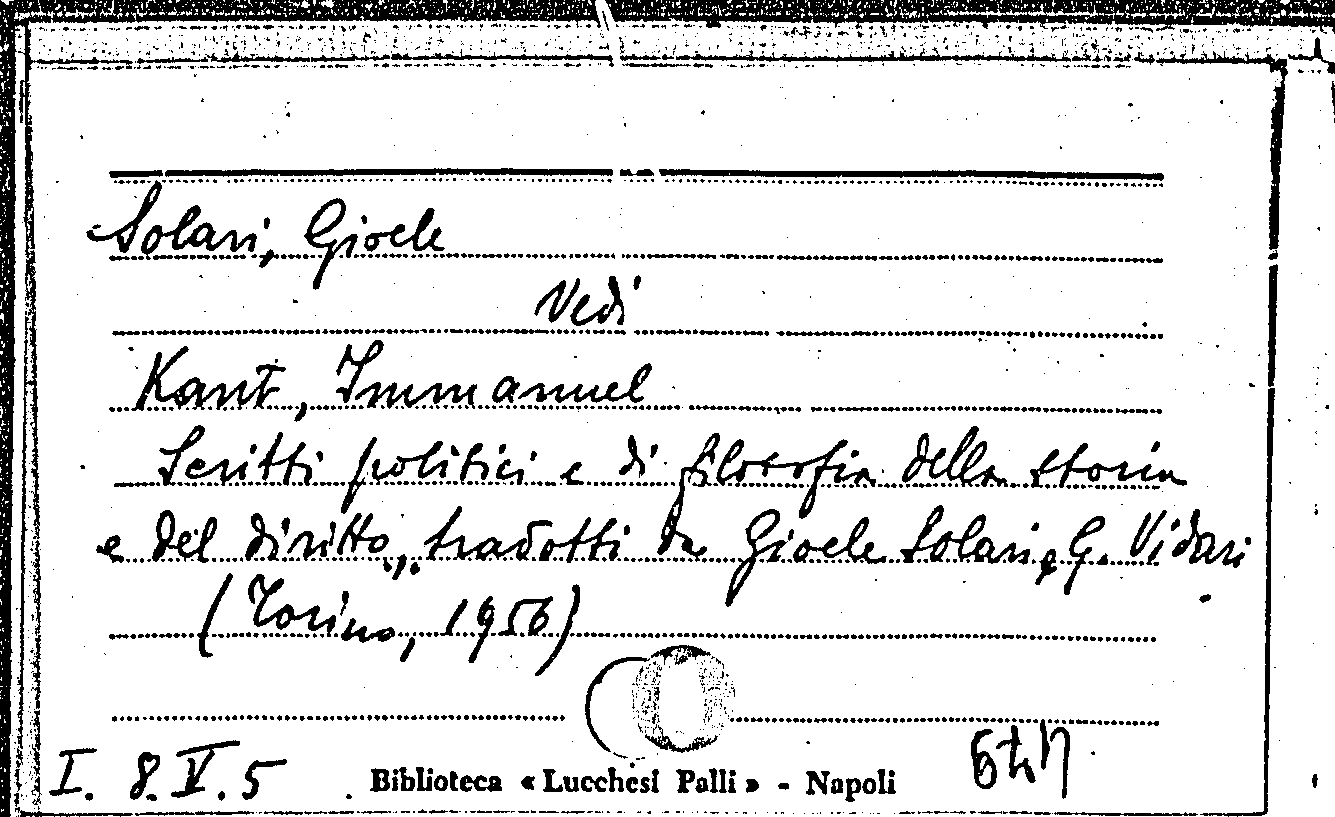 Solari, Gioele
Vedi
Kant, Immanuel
Scritti politici e di filosofia della storia
e del diritto, tradotti da Gioele Solari e G. Vidari
(Torino, 1956)
I. 8. V. 5
Biblioteca « Lucchesi Palli » - Napoli